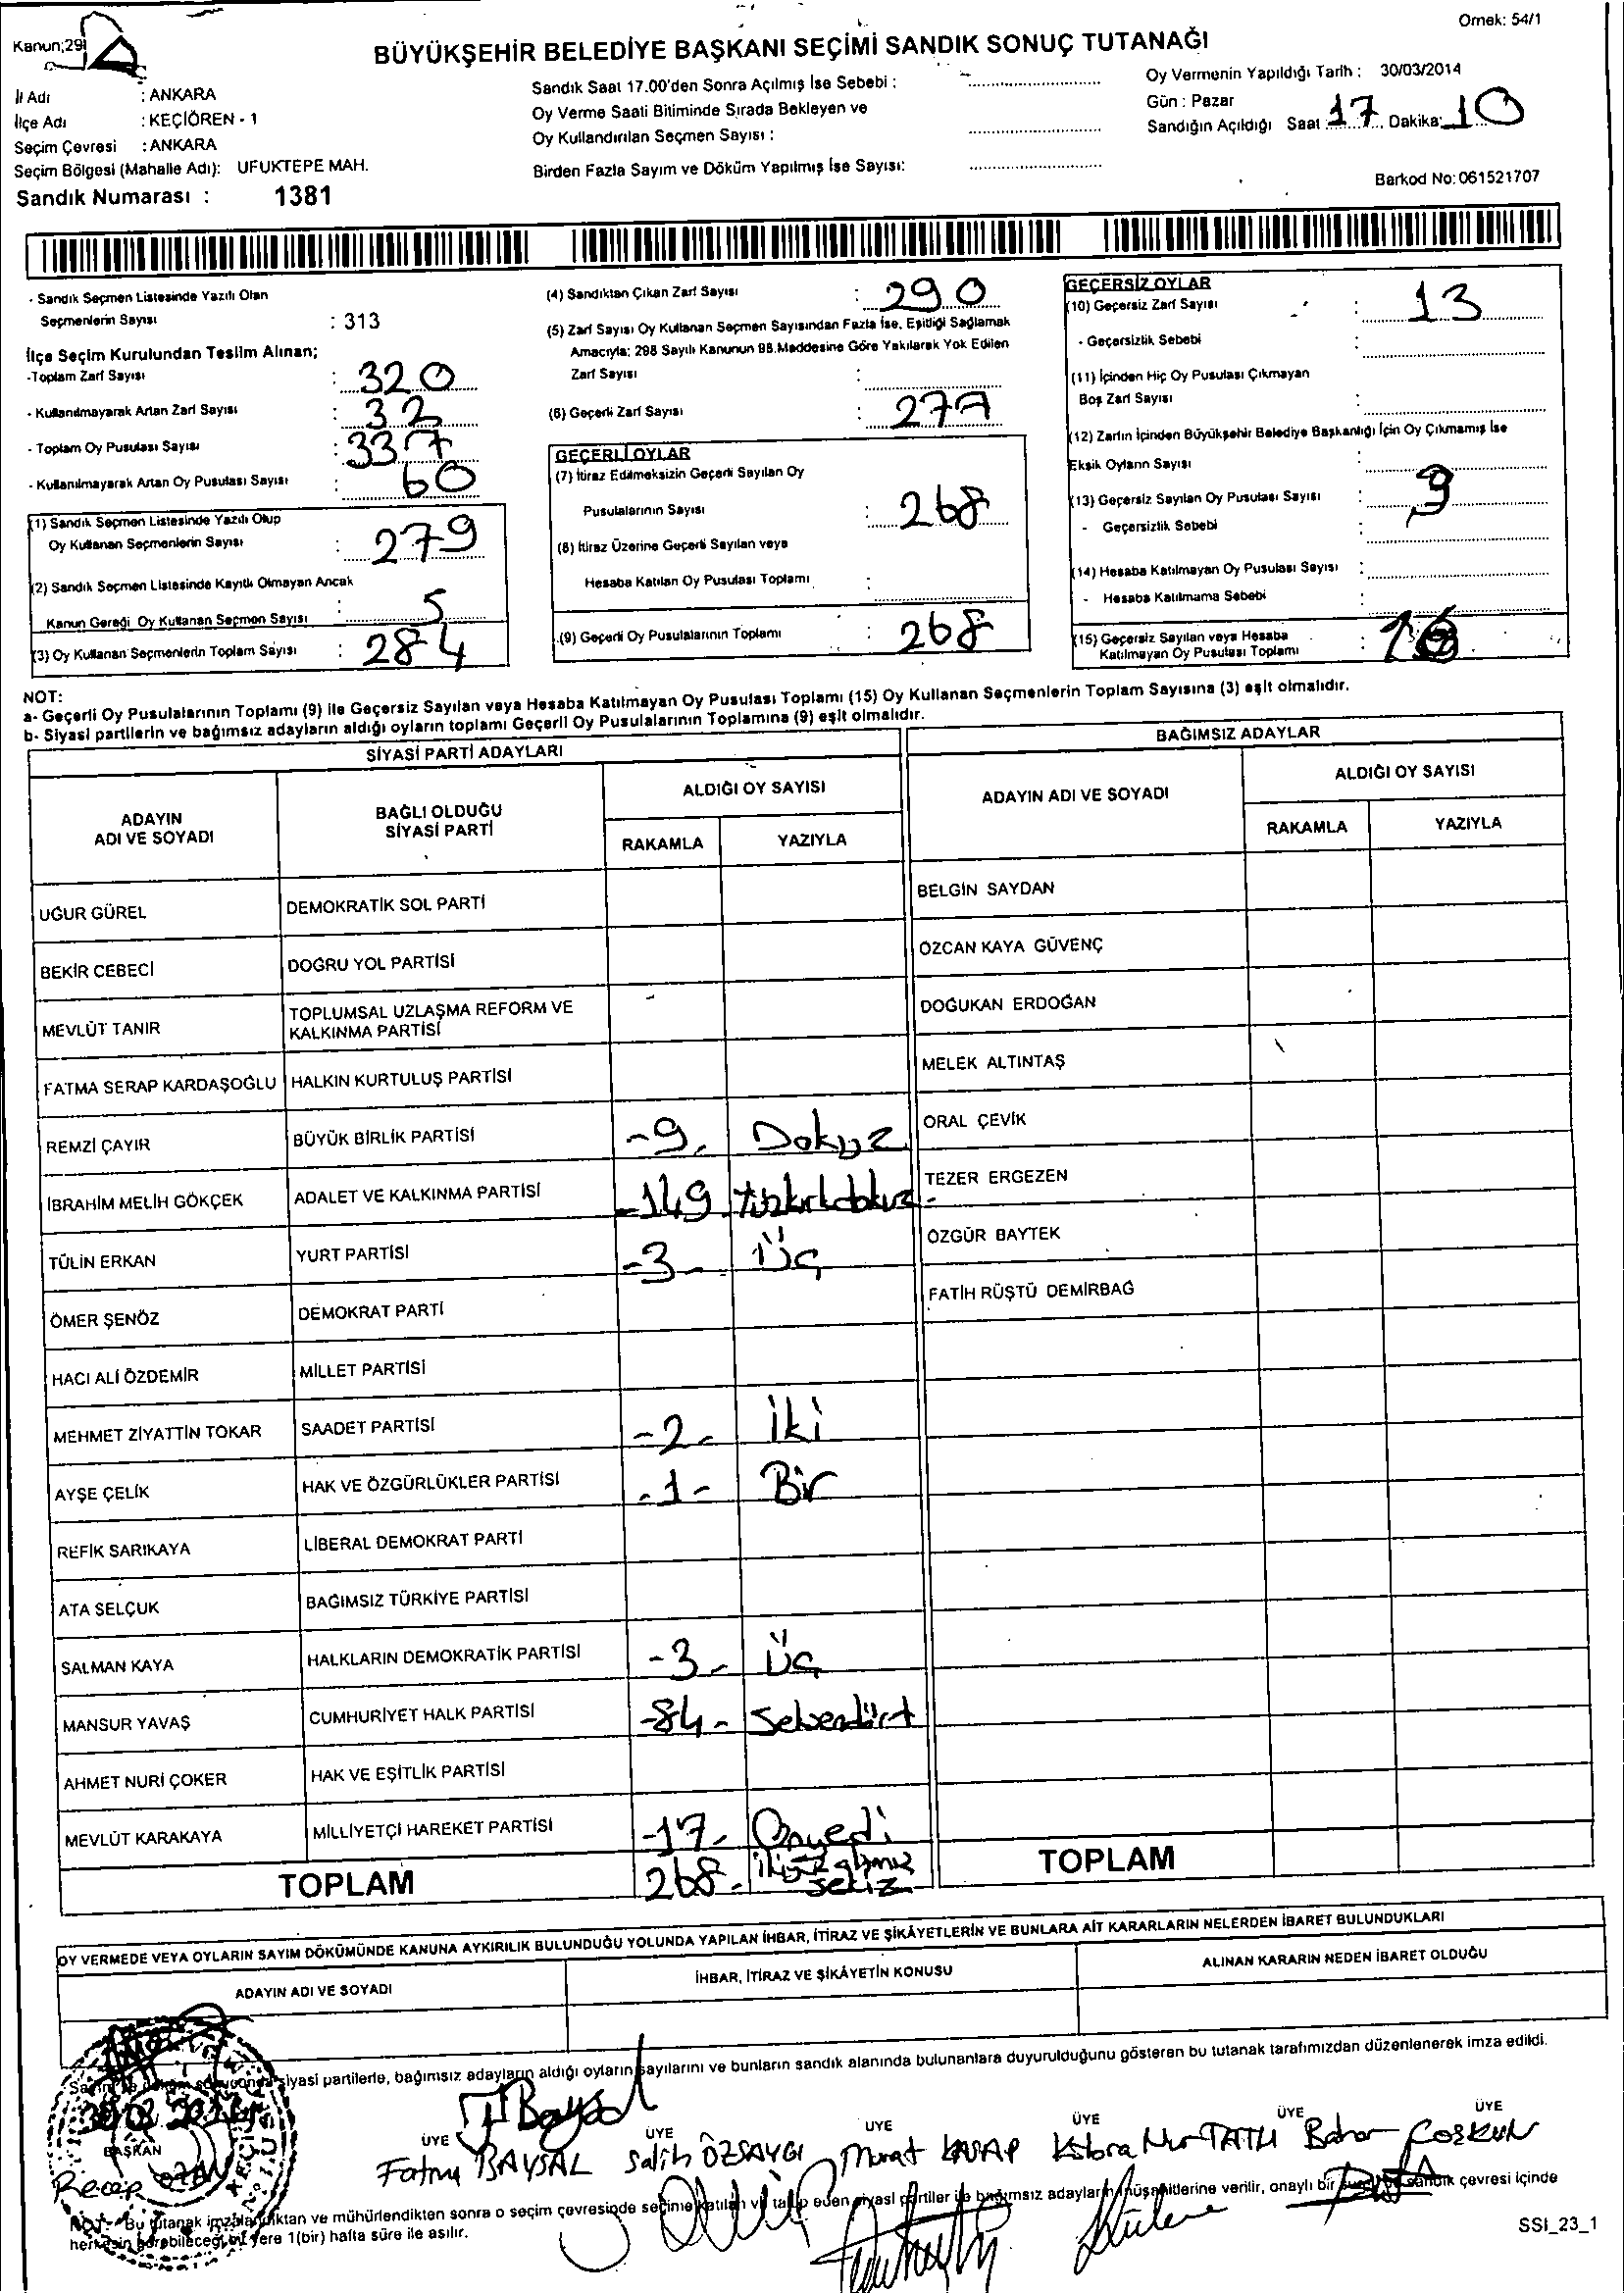 Örnek: 54/1
Kanun;29
BÜYÜKŞEHİR BELEDİYE BAŞKANI SEÇİMİ SANDIK SONUÇ TUTANAĞI
İl Adı : ANKARA
İlçe Adı : KEÇİÖREN - 1
Seçim Çevresi : ANKARA
Seçim Bölgesi (Mahalle Adı): UFUKTEPE MAH.
Sandık Numarası : 1381
Sandık Saat 17.00'den Sonra Açılmış İse Sebebi :
Oy Verme Saati Bitiminde Sırada Bekleyen ve
Oy Kullandırılan Seçmen Sayısı :
Birden Fazla Sayım ve Döküm Yapılmış İse Sayısı:
Oy Vermenin Yapıldığı Tarih : 30/03/2014
Gün : Pazar
Sandığın Açıldığı Saat 17 Dakika: 10
Barkod No: 061521707
- Sandık Seçmen Listesinde Yazılı Olan
Seçmenlerin Sayısı : 313
İlçe Seçim Kurulundan Teslim Alınan;
-Toplam Zarf Sayısı : 320
- Kullanılmayarak Artan Zarf Sayısı : 32
- Toplam Oy Pusulası Sayısı : 337
- Kullanılmayarak Artan Oy Pusulası Sayısı : 60
(1) Sandık Seçmen Listesinde Yazılı Olup
Oy Kullanan Seçmenlerin Sayısı : 279
(2) Sandık Seçmen Listesinde Kayıtlı Olmayan Ancak
Kanun Gereği Oy Kullanan Seçmen Sayısı : 5
(3) Oy Kullanan Seçmenlerin Toplam Sayısı : 284
(4) Sandıktan Çıkan Zarf Sayısı : 290
(5) Zarf Sayısı Oy Kullanan Seçmen Sayısından Fazla İse, Eşitliği Sağlamak
Amacıyla; 298 Sayılı Kanunun 98.Maddesine Göre Yakılarak Yok Edilen
Zarf Sayısı :
(6) Geçerli Zarf Sayısı : 277
GEÇERLİ OYLAR
(7) İtiraz Edilmeksizin Geçerli Sayılan Oy
Pusulalarının Sayısı : 268
(8) İtiraz Üzerine Geçerli Sayılan veya
Hesaba Katılan Oy Pusulası Toplamı :
(9) Geçerli Oy Pusulalarının Toplamı : 268
GEÇERSİZ OYLAR
(10) Geçersiz Zarf Sayısı : 13
- Geçersizlik Sebebi :
(11) İçinden Hiç Oy Pusulası Çıkmayan
Boş Zarf Sayısı :
(12) Zarfın İçinden Büyükşehir Belediye Başkanlığı İçin Oy Çıkmamış İse
Eksik Oyların Sayısı :
(13) Geçersiz Sayılan Oy Pusulası Sayısı : 9
- Geçersizlik Sebebi :
(14) Hesaba Katılmayan Oy Pusulası Sayısı :
- Hesaba Katılmama Sebebi :
(15) Geçersiz Sayılan veya Hesaba
Katılmayan Oy Pusulası Toplamı : 16
NOT:
a- Geçerli Oy Pusulalarının Toplamı (9) ile Geçersiz Sayılan veya Hesaba Katılmayan Oy Pusulası Toplamı (15) Oy Kullanan Seçmenlerin Toplam Sayısına (3) eşit olmalıdır.
b- Siyasi partilerin ve bağımsız adayların aldığı oyların toplamı Geçerli Oy Pusulalarının Toplamına (9) eşit olmalıdır.
SİYASİ PARTİ ADAYLARI
ADAYIN ADI VE SOYADI BAĞLI OLDUĞU SİYASİ PARTİ ALDIĞI OY SAYISI
RAKAMLA YAZIYLA
UĞUR GÜREL DEMOKRATİK SOL PARTİ
BEKİR CEBECİ DOĞRU YOL PARTİSİ
MEVLÜT TANIR TOPLUMSAL UZLAŞMA REFORM VE KALKINMA PARTİSİ
FATMA SERAP KARDAŞOĞLU HALKIN KURTULUŞ PARTİSİ
REMZİ ÇAYIR BÜYÜK BİRLİK PARTİSİ -9- Dokuz
İBRAHİM MELİH GÖKÇEK ADALET VE KALKINMA PARTİSİ -149 yüzkırkdokuz-
TÜLİN ERKAN YURT PARTİSİ -3- Üç
ÖMER ŞENÖZ DEMOKRAT PARTİ
HACI ALİ ÖZDEMİR MİLLET PARTİSİ
MEHMET ZİYATTİN TOKAR SAADET PARTİSİ -2- İki
AYŞE ÇELİK HAK VE ÖZGÜRLÜKLER PARTİSİ -1- Bir
REFİK SARIKAYA LİBERAL DEMOKRAT PARTİ
ATA SELÇUK BAĞIMSIZ TÜRKİYE PARTİSİ
SALMAN KAYA HALKLARIN DEMOKRATİK PARTİSİ -3- Üç
MANSUR YAVAŞ CUMHURİYET HALK PARTİSİ -84- Seksendört
AHMET NURİ ÇOKER HAK VE EŞİTLİK PARTİSİ
MEVLÜT KARAKAYA MİLLİYETÇİ HAREKET PARTİSİ -17- Onyedi
TOPLAM 268- ikiyüzaltmış sekiz
BAĞIMSIZ ADAYLAR
ADAYIN ADI VE SOYADI ALDIĞI OY SAYISI
RAKAMLA YAZIYLA
BELGİN SAYDAN
ÖZCAN KAYA GÜVENÇ
DOĞUKAN ERDOĞAN
MELEK ALTINTAŞ
ORAL ÇEVİK
TEZER ERGEZEN
ÖZGÜR BAYTEK
FATİH RÜŞTÜ DEMİRBAĞ
TOPLAM
OY VERMEDE VEYA OYLARIN SAYIM DÖKÜMÜNDE KANUNA AYKIRILIK BULUNDUĞU YOLUNDA YAPILAN İHBAR, İTİRAZ VE ŞİKÂYETLERİN VE BUNLARA AİT KARARLARIN NELERDEN İBARET BULUNDUKLARI
ADAYIN ADI VE SOYADI İHBAR, İTİRAZ VE ŞİKÂYETİN KONUSU ALINAN KARARIN NEDEN İBARET OLDUĞU
siyasi partilerle, bağımsız adayların aldığı oyların sayılarını ve bunların sandık alanında bulunanlara duyurulduğunu gösteren bu tutanak tarafımızdan düzenlenerek imza edildi.
BAŞKAN ÜYE ÜYE ÜYE ÜYE ÜYE ÜYE
Recep OZAN Fatma BAYSAL Salih ÖZSAYGI Murat KASAP Kübra Nur TATLI Bahar COŞKUN
NOT:- Bu tutanak imzalandıktan ve mühürlendikten sonra o seçim çevresinde seçime katılan ve talep eden siyasi partiler ile bağımsız adayların müşahitlerine verilir, onaylı bir sandık çevresi içinde
herkesin görebileceği bir yere 1(bir) hafta süre ile asılır.
SSI_23_1